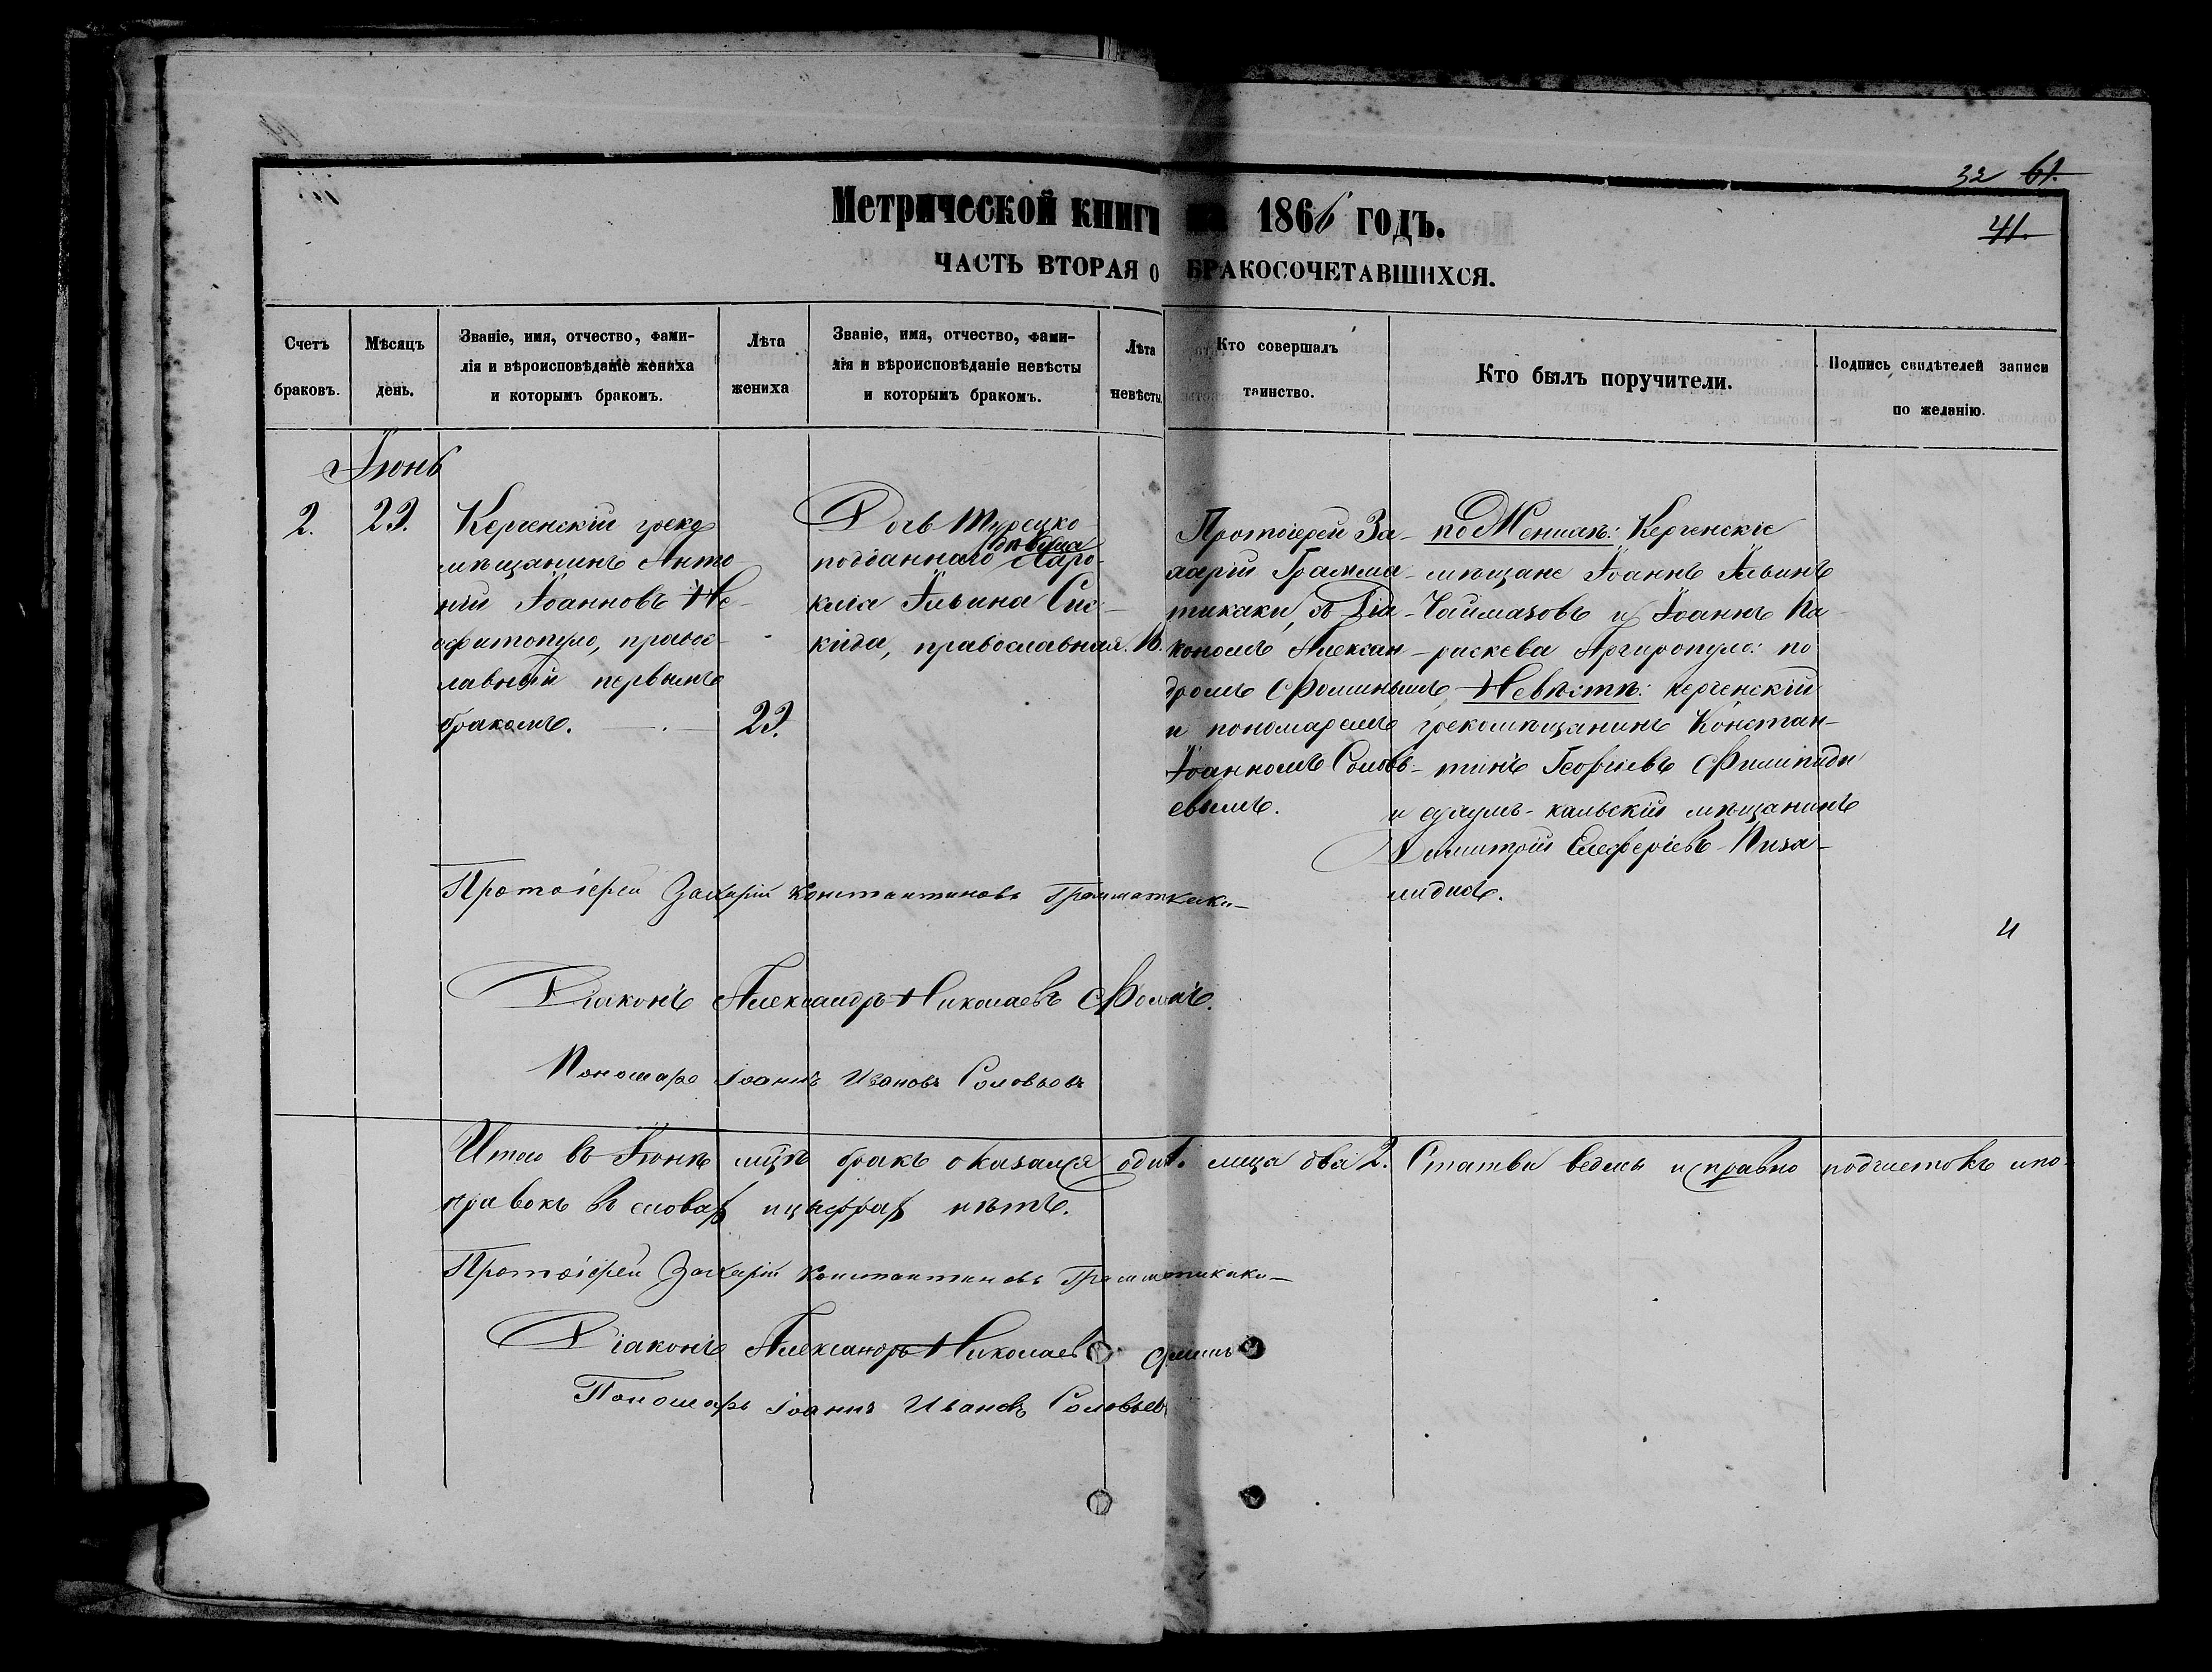 32 61.
41.
Метрической книги на 1866 годъ.
ЧАСТЬ ВТОРАЯ О БРАКОСОЧЕТАВШИХСЯ.
Счетъ браковъ.
Мѣсяцъ день.
Званіе, имя, отчество, фами-
лія и вѣроисповѣданіе жениха
и которымъ бракомъ.
Лѣта жениха
Званіе, имя, отчество, фами-
лія и вѣроисповѣданіе невѣсты
и которымъ бракомъ.
Лѣта невѣсты
Кто совершалъ
таинство.
Кто былъ поручители.
Подпись свидѣтелей записи
по желанію.
Іюнь
2.
29.
Керченскій греко
мѣщанинъ Анто
ній Іоанновъ Не-
офитопуло, правос-
лавный первымъ
бракомъ.
29.
Дочь Турецко
подданнаго
Ильина
православная.
16.
Протоіерей За-
харій Грамма-
тикаки, съ Діа-
кономъ Алексан-
дромъ Фоминымъ,
и пономаремъ
Іоанномъ Соловь-
евымъ.
по Женихѣ: Керченскіе
мѣщане Іоаннъ Ильинъ
Чаймазовъ и Іоаннъ Па-
раскева Аргиропуло: по
Невѣстѣ: керченскій
грекомѣщанинъ Констан-
тинъ Георгіевъ Филипиди
и сухумъ-кальскій мѣщанинъ
Димитрій Елеферіевъ
Протоіерей Захарій Константиновъ Грамматикаки
Діаконъ Александръ Николаевъ Фоминъ.
Пономарь Іоаннъ Ивановъ Соловьевъ
Итого въ Іюнѣ мцѣ бракъ оказался одинъ 1. лица два 2. Статьи ведены исправно подчистокъ и по-
правокъ въ словах и цыфрах нѣтъ.
Протоіерей Захарій Константиновъ Грамматикаки
Діаконъ Александръ Николаевъ Фоминъ
Пономарь Іоаннъ Ивановъ Соловьевъ